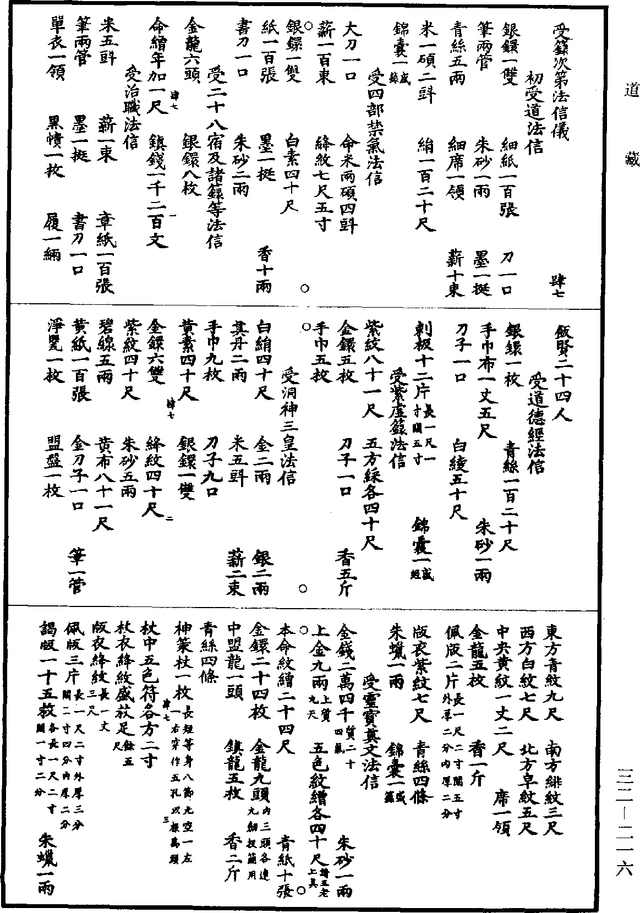 道藏
受籙次第法信儀 肆七
初受道法信
銀鐶一雙 細紙一百張 刀一口
筆兩管 朱砂一兩 墨一挺
青絲五兩 細席一領 薪十束
米一碩二㪷 絹一百二十尺
錦囊一盛籙
受四部禁氣法信
大刀一口 命米兩碩四㪷
薪一百束 絳紋七尺五寸
銀鐶一雙 白素四十尺
紙一百張 墨一挺 香十兩
書刀一口 朱砂二兩
受二十八宿及諸籙等法信
金龍六頭 銀鐶八枚
命繒年加一尺 鎮錢一千二百文
受治職法信
米五㪷 薪一束 章紙一百張
筆兩管 墨一挺 書刀一口
單衣一領 黑幘一枚 履一緉
飯賢二十四人
受道德經法信
銀鐶一枚 青絲一百二十尺
手巾布一丈五尺 朱砂一兩
刀子一口 白綾五十尺
刺板十二片長一尺一寸闊五寸 錦囊一盛經
受紫虛籙法信
紫紋八十一尺 五方綵各四十尺
金鐶五枚 刀子一口 香五斤
手巾五枚
受洞神三皇法信
白絹四十尺 金二兩 銀二兩
真丹二兩 米五㪷 薪二束
手巾九枚 刀子九口
黃素四十尺 銀鐶一雙
金鐶六雙 絳紋四十尺
紫紋四十尺 朱砂五兩
碧線五兩 黃布八十一尺
黃紙一百張 金刀子一口 筆一管
淨甖一枚 盟盤一枚
東方青紋九尺 南方緋紋三尺
西方白紋七尺 北方皁紋五尺
中央黃紋一丈二尺 席一領
金龍五枚 香一斤
佩版二片長一尺二寸闊五寸外厚二分內厚二分
版衣紫紋七尺 青絲四條
朱蠟一兩 錦囊一盛籙
受靈寶真文法信
金錢二萬四千質二十四氣 朱砂一兩
上金九兩上質九天 五色紋繒各四十尺請五老上真
本命紋繒二十四尺 青紙十張
金鐶二十四枚 金龍九頭內三頭各連九鈕投簡用
中盟龍一頭 鎮龍五枚 香二斤
青絲四條
神策杖一枚長短等身八節元空一左一右穿作五孔以椽為頭
杖中五色符各方二寸
杖衣絳紋盛裁足餘五尺
版衣絳紋長一丈三尺
佩版三片長一尺二寸外厚三分闊二寸四分內厚二分
謁版一十五枚各長一尺二寸闊一寸二分 朱蠟一兩
三二—二一六